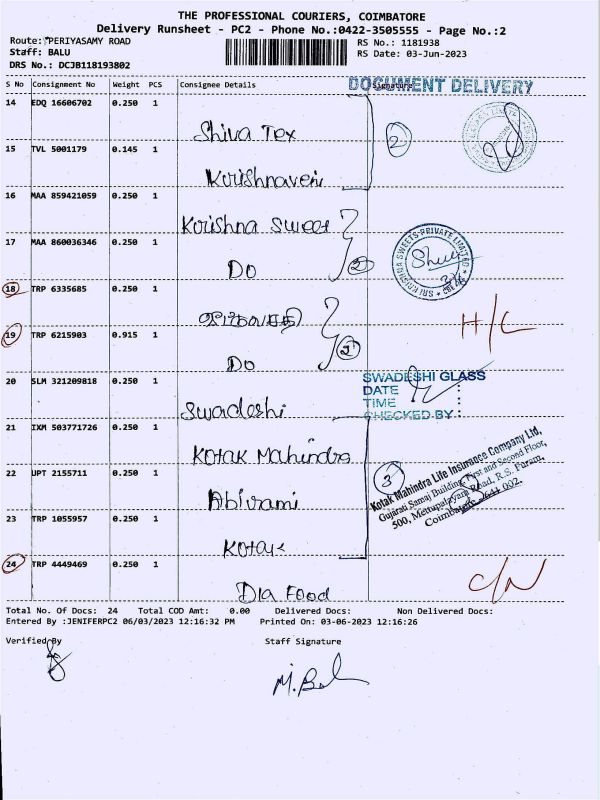 THE PROFESSIONAL COURIERS, COIMBATORE
Delivery Runsheet - PC2 - Phone No.:0422-3505555 - Page No.:2
Route: PERIYASAMY ROAD
RS No.: 1181938
Staff: BALU
RS Date: 03-Jun-2023
DRS No.: DCJB118193802
S No Consignment No Weight PCS Consignee Details Signature
DOCUMENT DELIVERY
14 EDQ 16606702 0.250 1
Shiva Tex
2
15 TVL 5001179 0.145 1
Krishnaveni
16 MAA 859421059 0.250 1
Krishna Sweet
SRI KRISHNA SWEETS PRIVATE LIMITED
17 MAA 860036346 0.250 1
Do
2
18 TRP 6335685 0.250 1
H/C
19 TRP 6215903 0.915 1
Do
2
20 SLM 321209818 0.250 1
Swadeshi
SWADESHI GLASS
DATE
TIME
CHECKED BY :
21 IXM 503771726 0.250 1
Kotak Mahindra
3
Kotak Mahindra Life Insurance Company Ltd,
Gujarati Samaj Building, First and Second Floor,
500, Mettupalayam Road, R.S. Puram,
Coimbatore - 641 002.
22 UPT 2155711 0.250 1
Abirami
23 TRP 1055957 0.250 1
Kotak
24 TRP 4449469 0.250 1
Dia Food
Total No. Of Docs: 24 Total COD Amt: 0.00 Delivered Docs: Non Delivered Docs:
Entered By :JENIFERPC2 06/03/2023 12:16:32 PM Printed On: 03-06-2023 12:16:26
Verified By Staff Signature